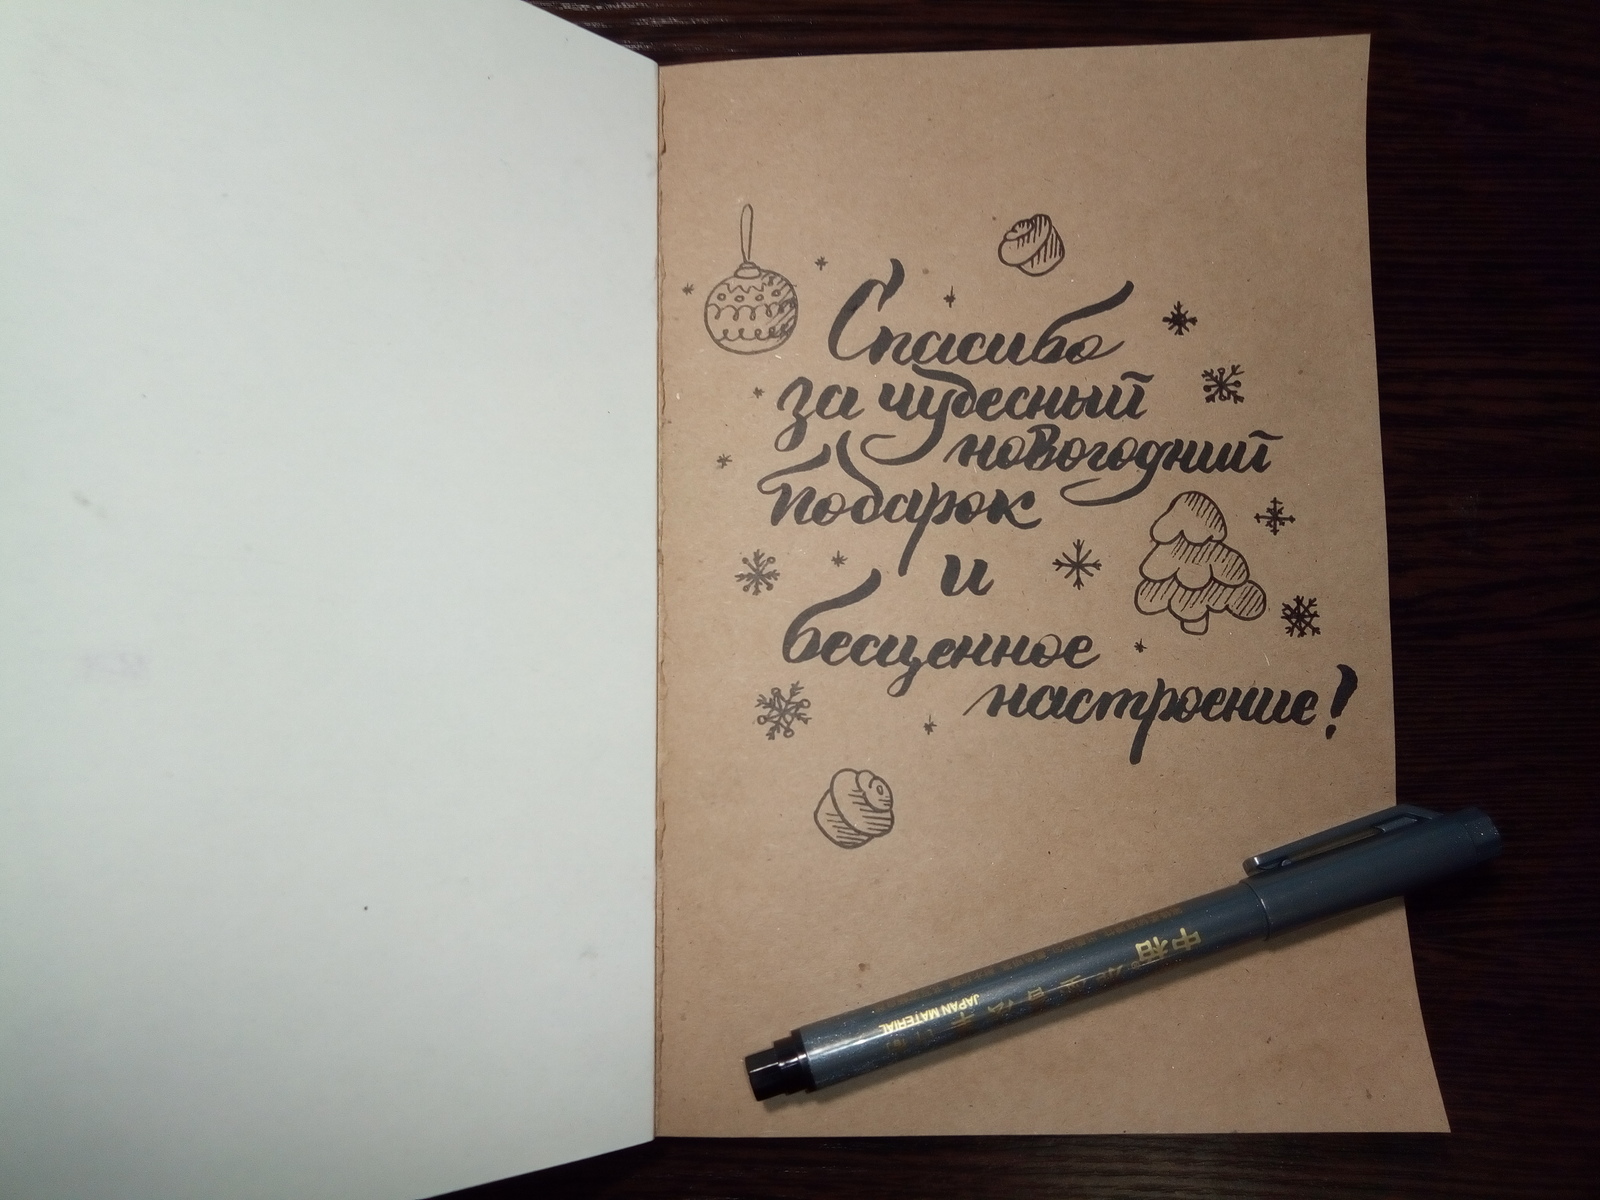 Спасибо
за чудесный
новогодний
подарок
и
бесценное
настроение!
中柏
JAPAN MATERIAL